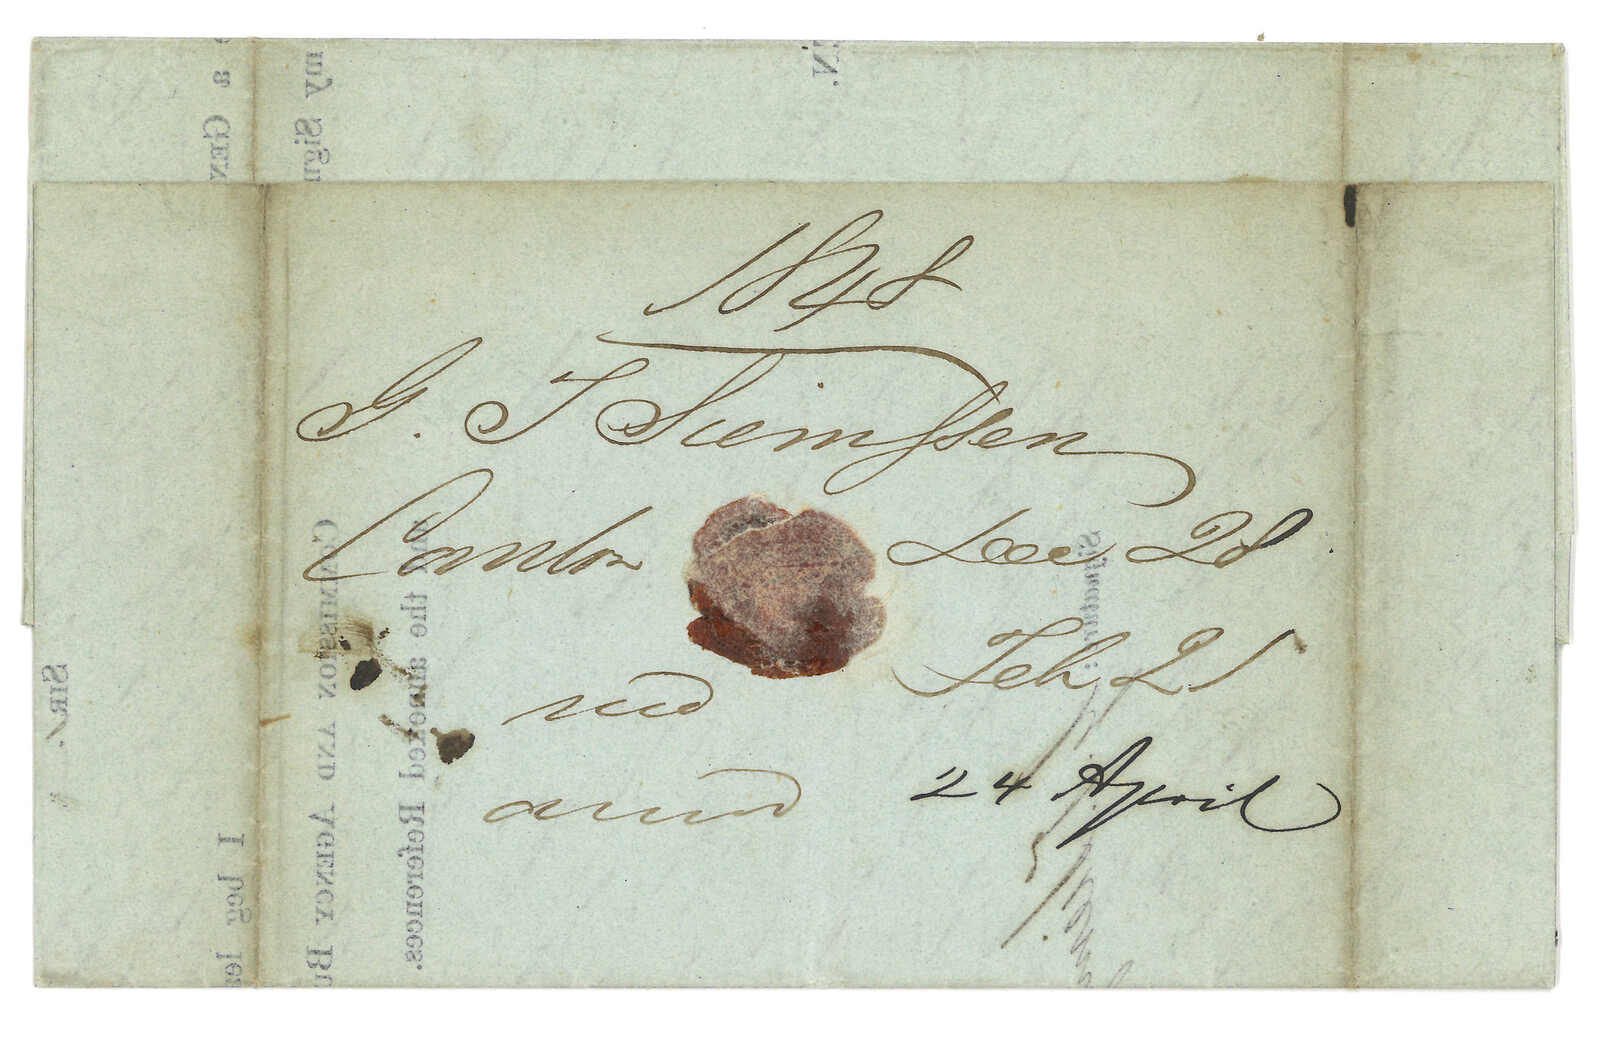 1848
G. T Siemssen
Canton Dec 28
Feb 21
24 April
my Sign
a GEN
EN.
SIR,
I beg le
COMMISSION AND AGENCY BU
the annexed References.
Signature: